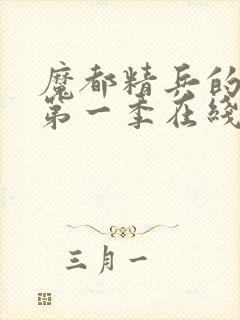 魔都精兵的
第一季在线
三月一